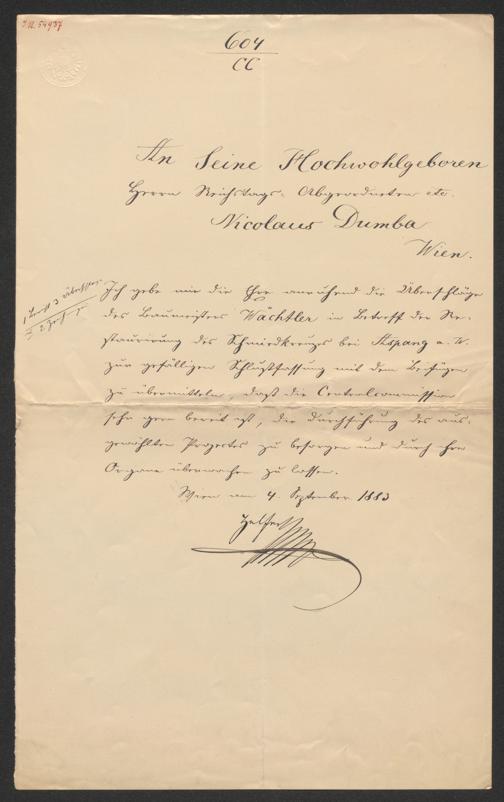 I.N. 54937
604
CC
An Seine Hochwohlgeboren
Herrn Reichstags-Abgeordneten etc.
Nicolaus Dumba
Wien.
Ich gebe mir die Ehre anruhend die Überschläge
des Baumeisters Wächtler in Betreff der Re-
staurirung des Schmiedkreuzes bei Aspang a. W.
zur gefälligen Schlußfassung mit dem Beifügen
zu übermitteln, daß die Centralcommission
sehr gern bereit ist, die Durchführung des aus-
gewählten Projectes zu besorgen und durch ihre
Organe überwachen zu lassen.
Wien am 4. September 1883
Helfert